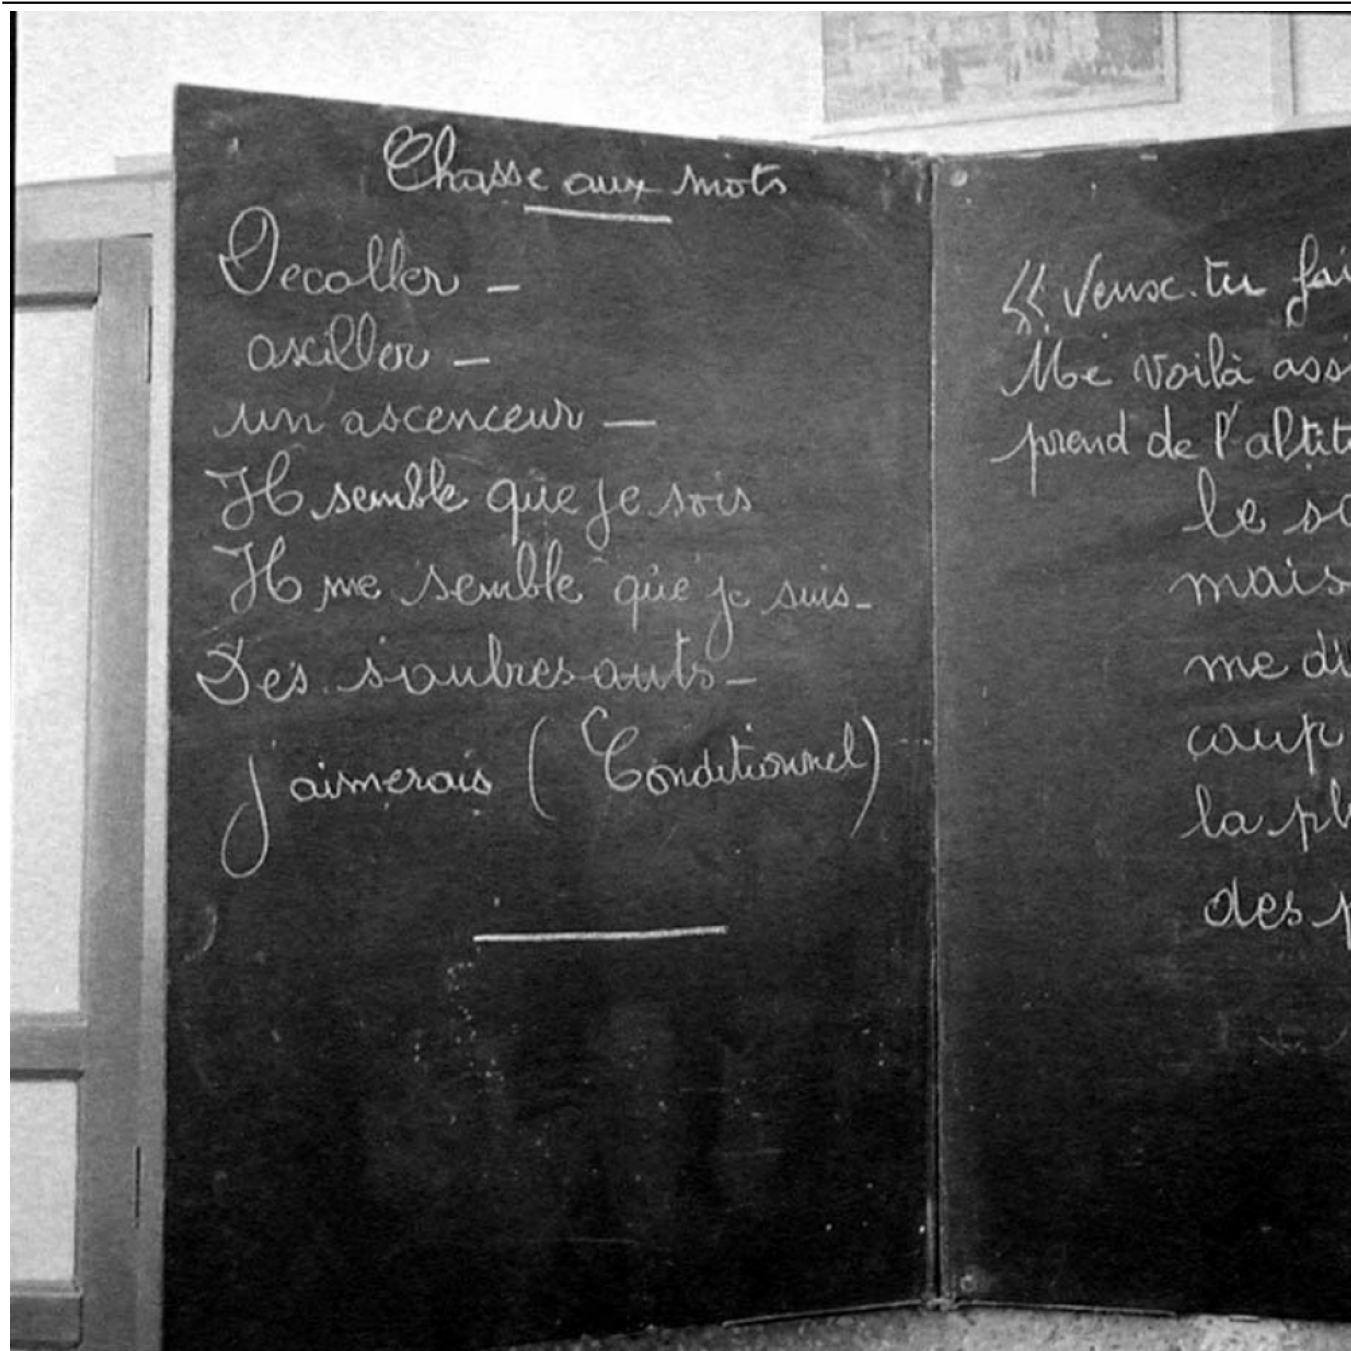 Chasse aux mots
Decoller –
osciller –
un ascenceur –
Il semble que je sois
Il me semble que je suis –
Des soubresauts –
J'aimerais (Conditionnel)
« Veux-tu fai
Me voilà ass
prend de l'altit
le so
mais
me di
coup
la pl
des p